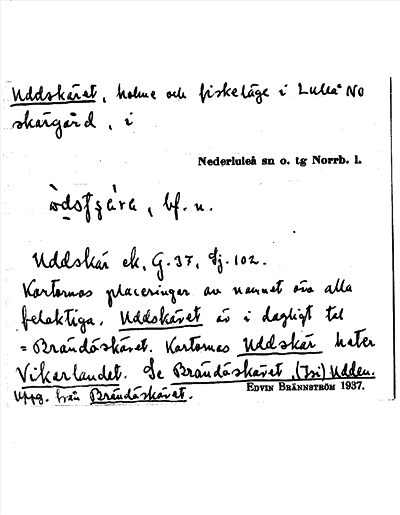 Uddskäret, holme och fiskeläge i Luleå No
skärgård, i
Nederluleå sn o. tg Norrb. l.
bf. u.
Uddskär ek, G.37, Sj.102.
Kartornas placeringar av namnet äro alla
felaktiga. Uddskäret är i dagligt tal
= Brändöskäret. Kartornas Uddskär heter
Vikarlandet. Se Brändöskäret, (Isi) Udden.
Uppg. från Brändöskäret.
EDVIN BRÄNNSTRÖM 1937.